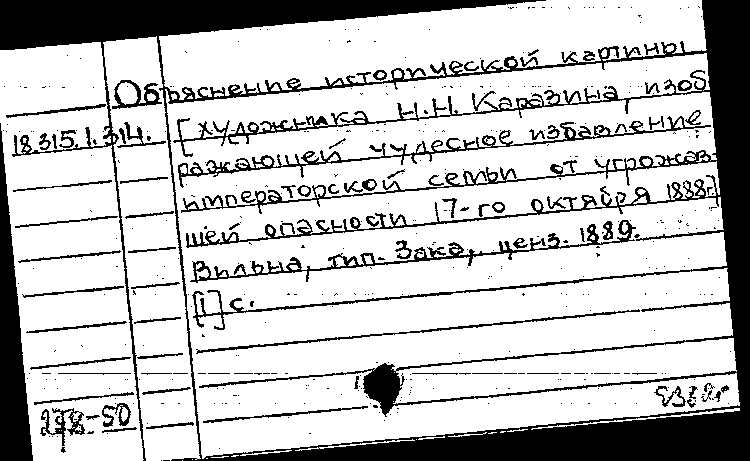 Объяснение исторической картины
18.315.1.314. [художника Н.Н. Каразина, изоб
ражающей чудесное избавление
императорской семьи от угрожав-
шей опасности 17-го октября 1888г.]
Вильна, тип. Зака, ценз. 1889.
[1] с.
278-50